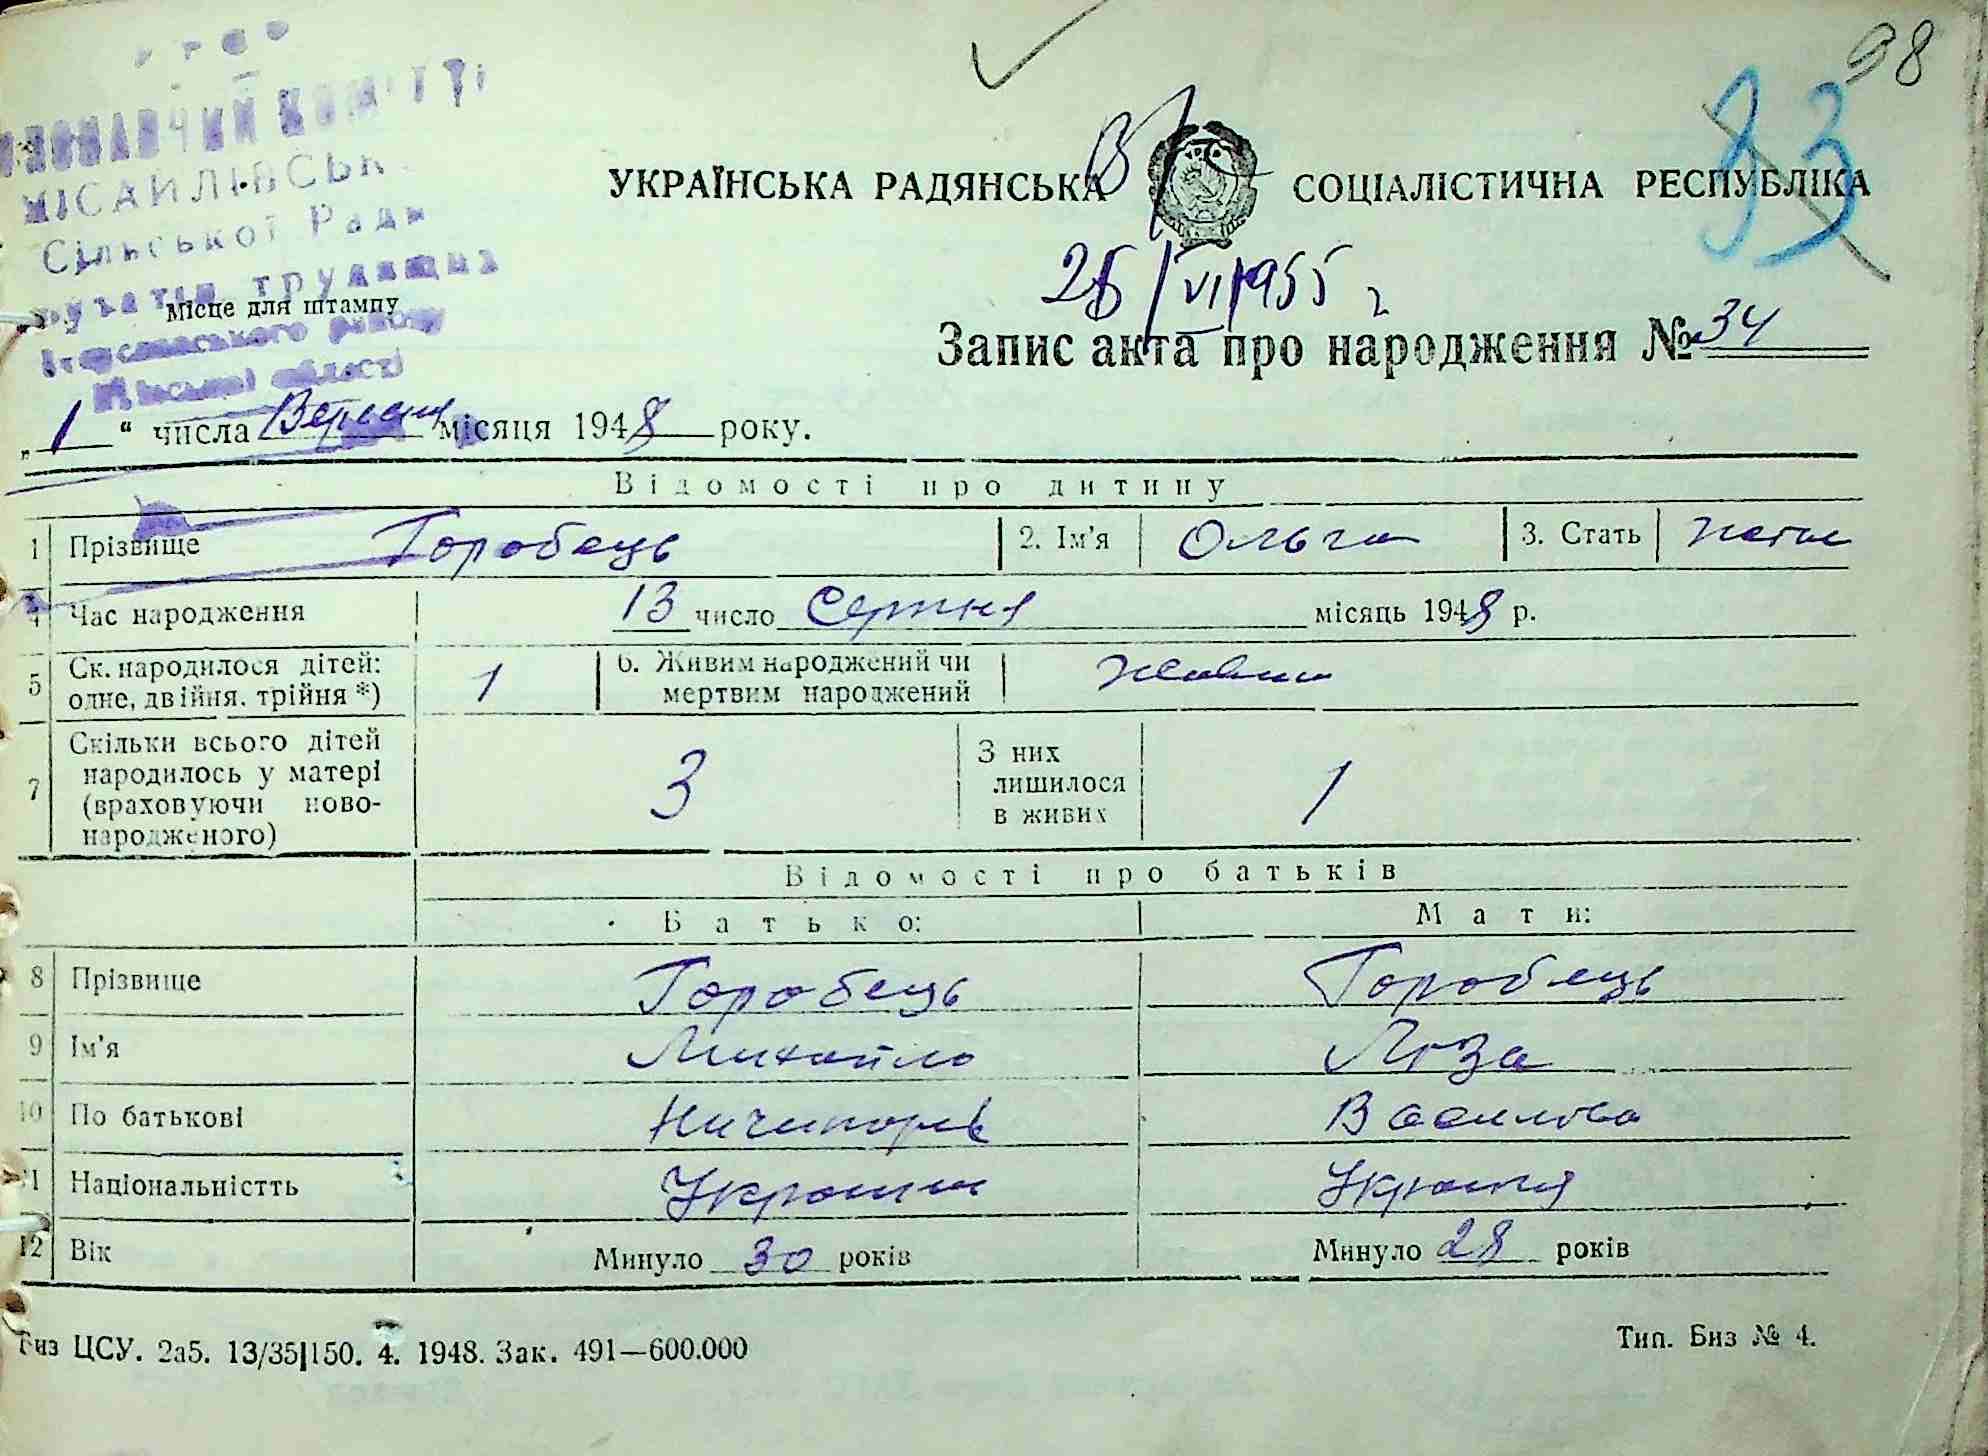 98
83
УРСР
ВИКОНАВЧИЙ КОМІТЕТ
МІСАЙЛІВСЬК
Сільської Ради
депутатів трудящих
району
області
Місце для штампу
УКРАЇНСЬКА РАДЯНСЬКА СОЦІАЛІСТИЧНА РЕСПУБЛІКА
25/VI 1955 г
Запис акта про народження № 34
„1“ числа Вересня місяця 1948 року.
Відомості про дитину
1 Прізвище Горобець 2. Ім'я Ольга 3. Стать
4 Час народження 13 число Серпня місяць 1948 р.
5 Ск. народилося дітей: одне, двійня, трійня *) 1 6. Живим народжений чи мертвим народжений Живим
7 Скільки всього дітей народилось у матері (враховуючи ново-народженого) 3 З них лишилося в живих 1
Відомості про батьків
Батько: Мати:
8 Прізвище Горобець Горобець
9 Ім'я Михайло
10 По батькові Ничипорів Василівна
11 Національністть Українець Українка
12 Вік Минуло 30 років Минуло 28 років
Биз ЦСУ. 2а5. 13/35|150. 4. 1948. Зак. 491—600.000 Тип. Биз № 4.